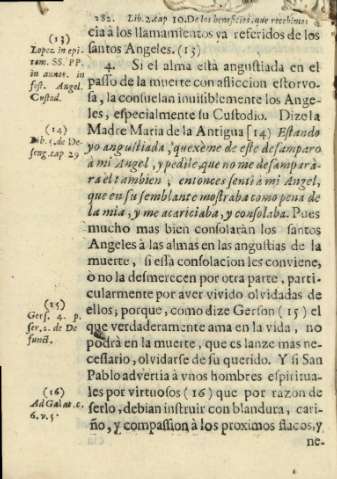 282. Lib. 2. cap 10. De los beneficios, que recebimos
cia à los llamamientos ya referidos de los
santos Angeles. (13)
4. Si el alma està angustiada en el
passo de la muerte con afliccion estorvo-
sa, la consuelan invisiblemente los Ange-
les, especialmente su Custodio. Dize la
Madre Maria de la Antigua [14) Estando
yo angustiada, quexème de este desamparo
à mi Angel, y pedile, que no me desampara-
ra èl tambien; entonces sentì à mi Angel,
que en su semblante mostraba como pena de
la mia, y me acariciaba, y consolaba. Pues
mucho mas bien consolaràn los santos
Angeles à las almas en las angustias de la
muerte, si essa consolacion les conviene,
ò no la desmerecen por otra parte, parti-
cularmente por aver vivido olvidadas de
ellos; porque, como dize Gerson (15) el
que verdaderamente ama en la vida, no
podrà en la muerte, que es lanze mas ne-
cessario, olvidarse de su querido. Y si San
Pablo advertia à vnos hombres espiritua-
les por virtuosos (16) que por razon de
serlo, debian instruir con blandura, cari-
ño, y compassion à los proximos flacos, y
ne-
(13)
Lopez in epi
tom. SS. PP.
in annot. in
fest. Angel.
Custod.
(14)
Lib. 1. de De-
seng. cap 29
(15)
Gers. 4. p.
ser. 2. de De
funct.
(16)
Ad Galat. c.
6. v. 5.